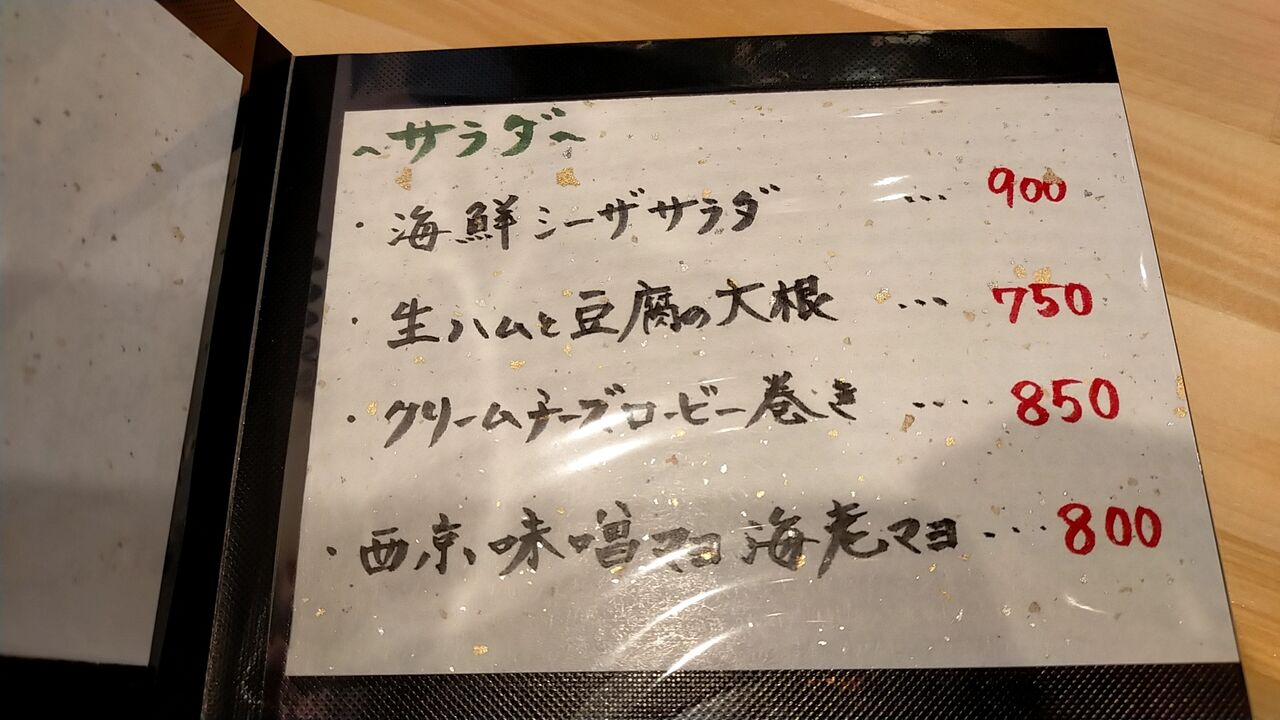 〜サラダ〜
・海鮮シーザサラダ … 900
・生ハムと豆腐の大根 … 750
・クリームチーズコービー巻き … 850
・西京味噌マヨ海老マヨ … 800